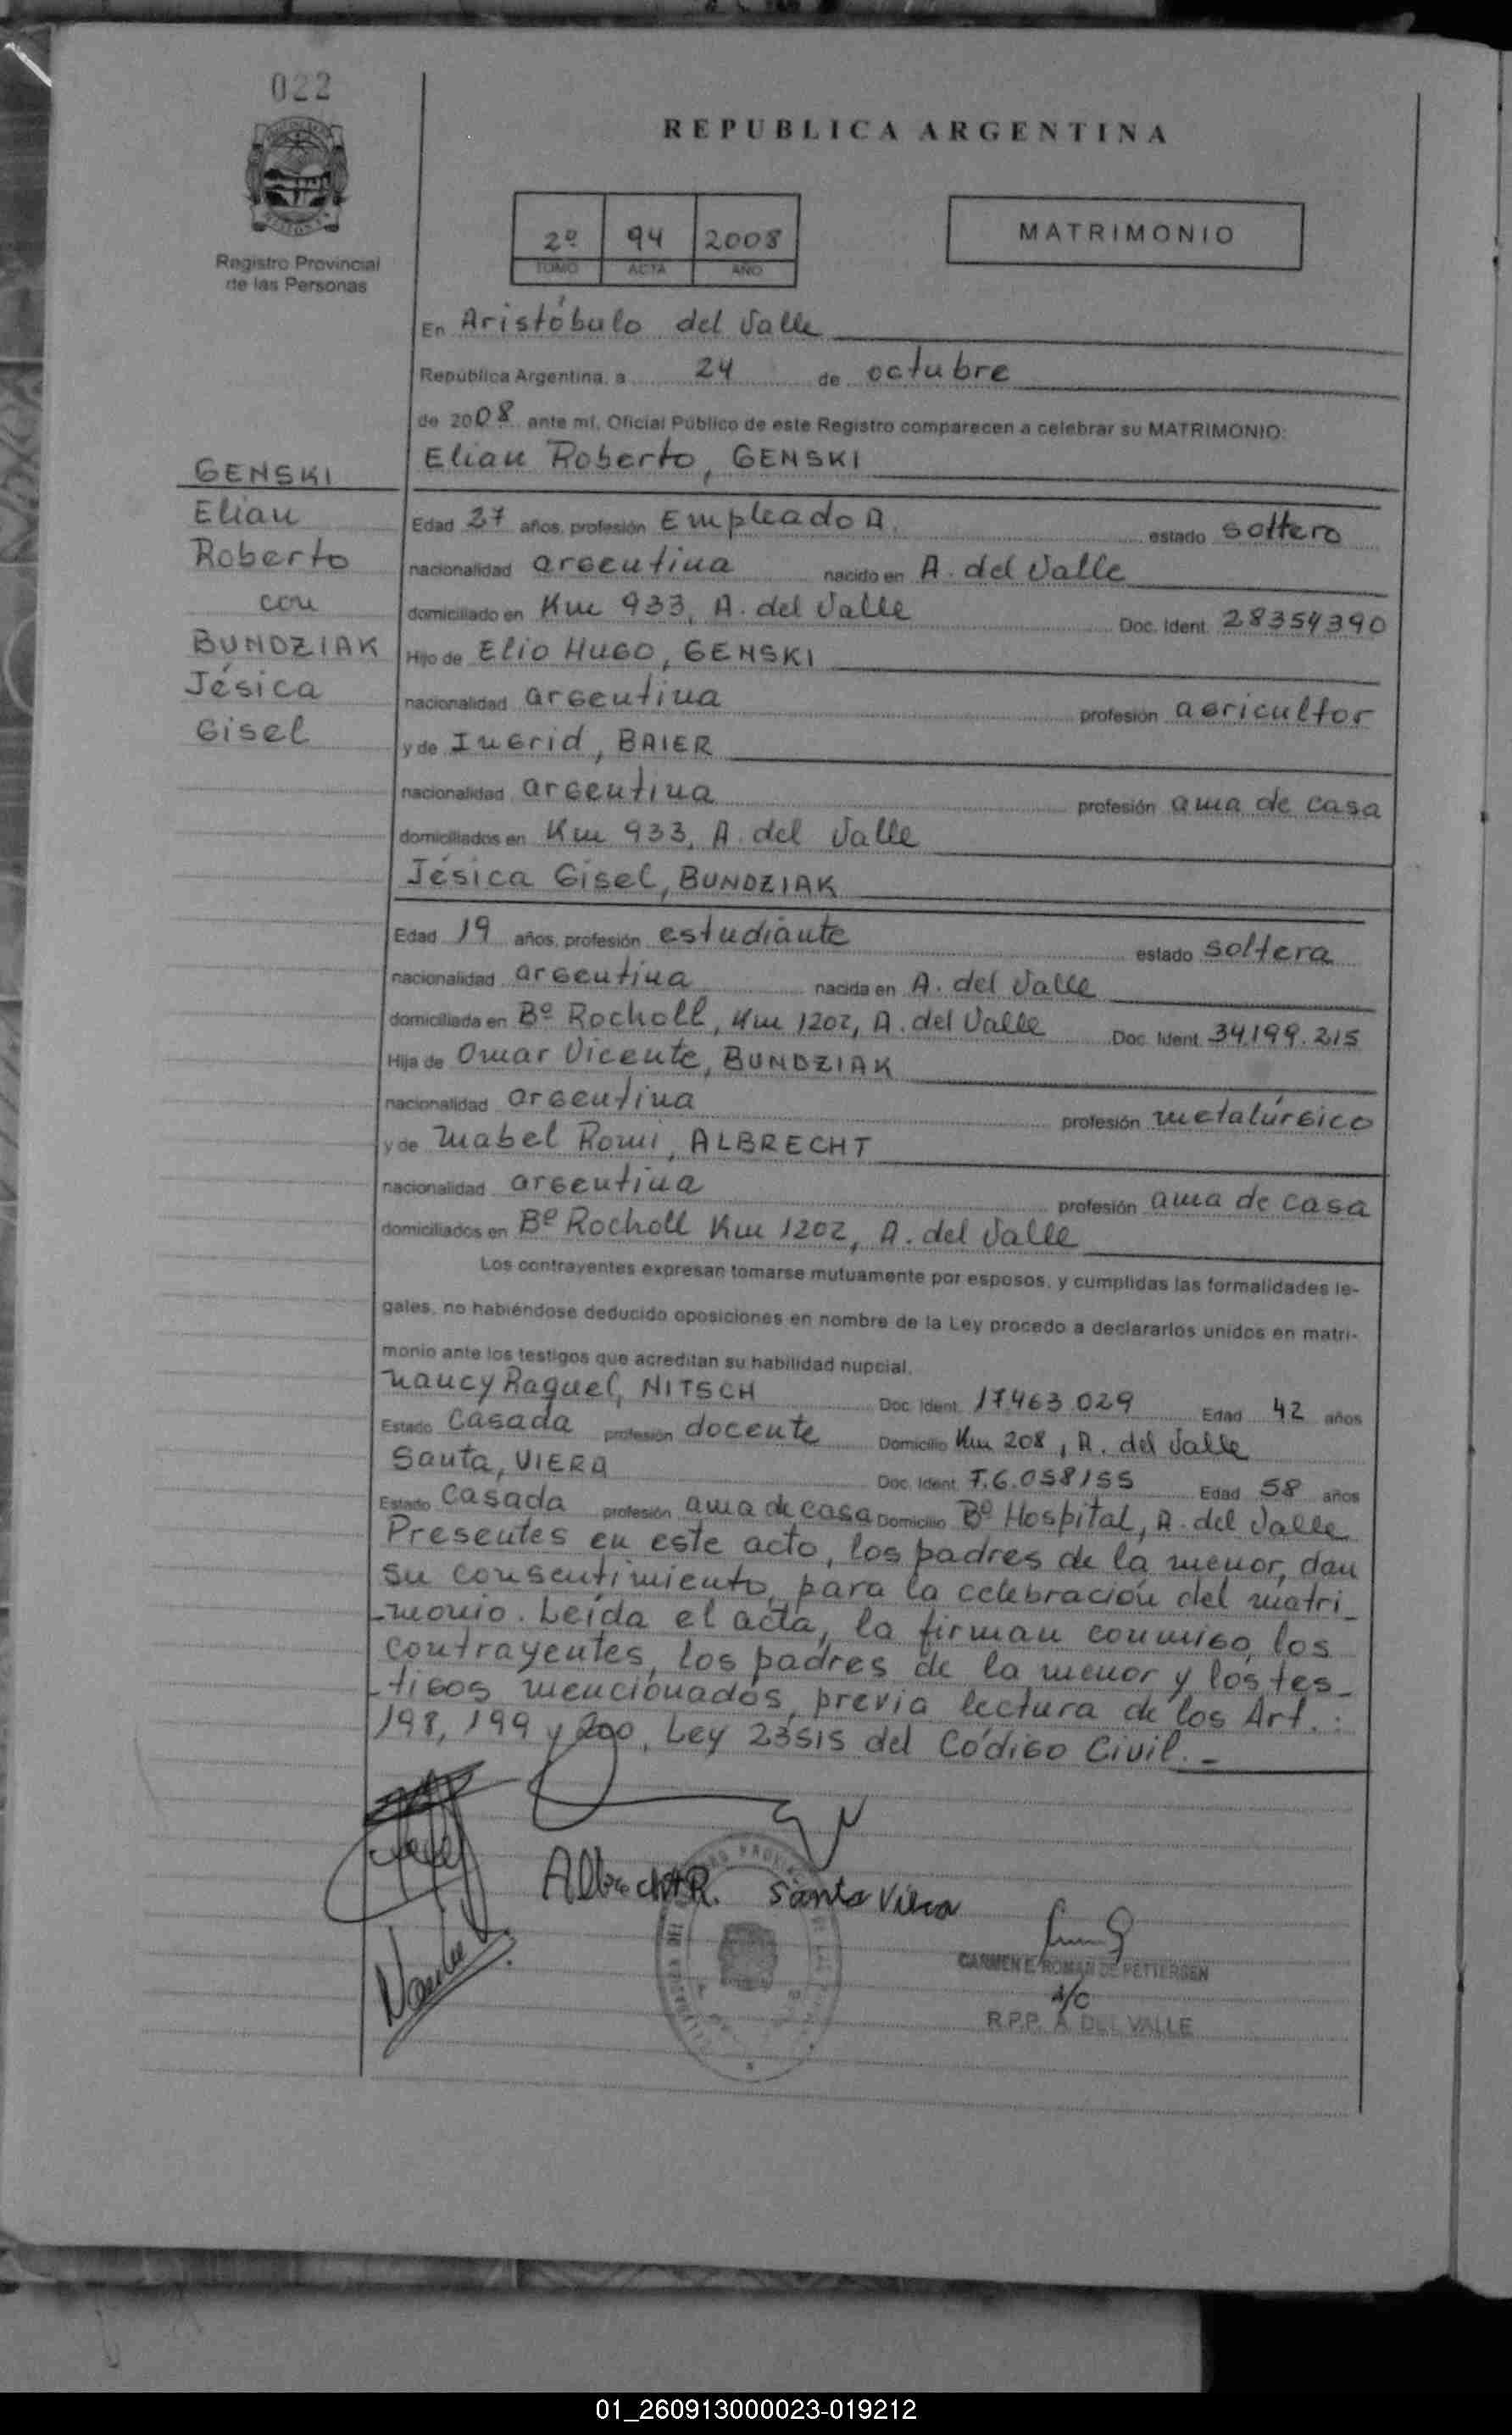 022
REPUBLICA ARGENTINA
2º 94 2008
TOMO ACTA AÑO
MATRIMONIO
Registro Provincial
de las Personas
En Aristóbulo del Valle
República Argentina, a 24 de octubre
de 2008 ante mí, Oficial Público de este Registro comparecen a celebrar su MATRIMONIO:
Elian Roberto, GENSKI
GENSKI
Elian
Roberto
con
BUNDZIAK
Jésica
Gisel
Edad 27 años, profesión Empleado A. estado soltero
nacionalidad argentina nacido en A. del Valle
domiciliado en Km 933, A. del Valle Doc. Ident. 28354390
Hijo de Elio HUGO, GENSKI
nacionalidad argentina profesión agricultor
y de Ingrid, BAIER
nacionalidad argentina profesión ama de casa
domiciliados en Km 933, A. del Valle
Jésica Gisel, BUNDZIAK
Edad 19 años, profesión estudiante estado soltera
nacionalidad argentina nacida en A. del Valle
domiciliada en Bº Rocholl, Km 1202, A. del Valle Doc. Ident. 34.199.215
Hija de Omar Vicente, BUNDZIAK
nacionalidad argentina profesión metalúrgico
y de Mabel Romi, ALBRECHT
nacionalidad argentina profesión ama de casa
domiciliados en Bº Rocholl Km 1202, A. del Valle
Los contrayentes expresan tomarse mutuamente por esposos, y cumplidas las formalidades le-
gales, no habiéndose deducido oposiciones en nombre de la Ley procedo a declararlos unidos en matri-
monio ante los testigos que acreditan su habilidad nupcial.
Nancy Raquel, NITSCH Doc. Ident. 17.463.029 Edad 42 años
Estado Casada profesión docente Domicilio Km 208, A. del Valle
Santa, VIERA Doc. Ident. F.6.058155 Edad 58 años
Estado Casada profesión ama de casa Domicilio Bº Hospital, A. del Valle
Presentes en este acto, los padres de la menor, dan
su consentimiento, para la celebración del matri_
_monio. Leída el acta, la firman conmigo, los
contrayentes, los padres de la menor y los tes_
_tigos mencionados, previa lectura de los Art. :
198, 199 y 200, Ley 23515 del Código Civil. -
Albrecht R. Santa Viera
CARMEN E. ROMAN DE PETTERSEN
A/C
R.P.P. A. DEL VALLE
01_260913000023-019212